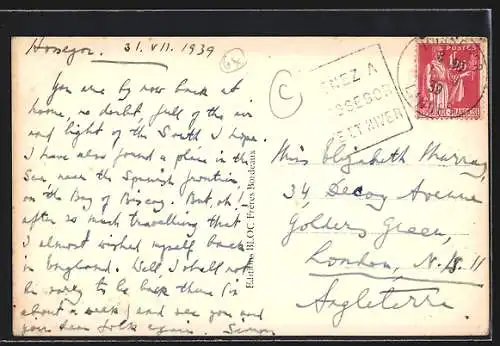 Hossegor. 31.VII.1939
You are by now back at
home, no doubt, full of the air
and light of the South I hope.
I have also found a place in the
Sun, near the Spanish frontier,
on the Bay of Biscay. But, oh!
after so much travelling that
I almost wished myself back
in England. Well, I shall not
be sorry to be back there (in
about a week) and see you and
your dear folks again. Simon
Editions BLOC Frères Bordeaux
C
VENEZ A
HOSSEGOR
ETE ET HIVER
POSTES
Miss Elizabeth Murray,
34, Decoy Avenue
Golders Green,
London, N.W. 11
Angleterre.